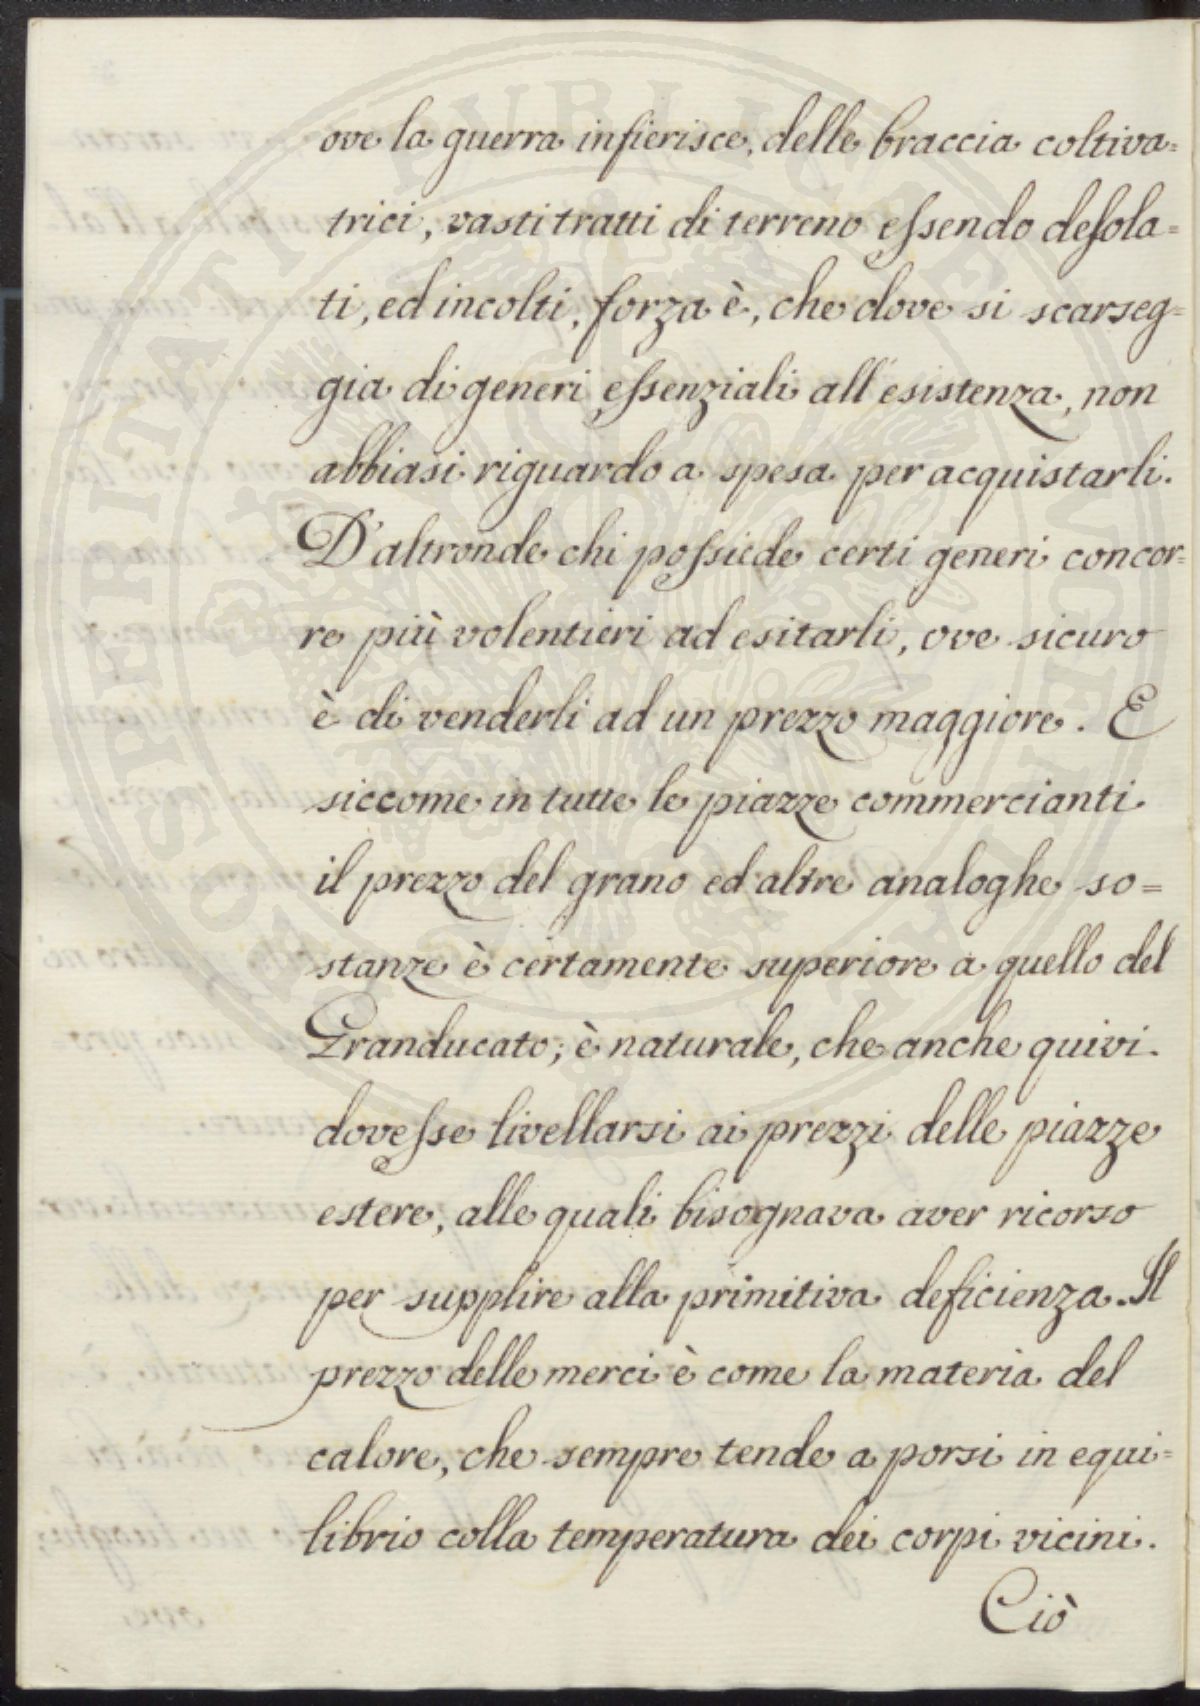 ove la guerra infierisce, delle braccia coltiva=
trici, vasti tratti di terreno eſsendo deſola=
ti, ed incolti, forza è, che dove si scarseg=
gia di generi eſsenziali all'esistenza, non
abbiasi riguardo a spesa per acquistarli.
D'altronde chi poſsiede certi generi concor=
re più volentieri ad esitarli, ove sicuro
è di venderli ad un prezzo maggiore. E
siccome in tutte le piazze commercianti
il prezzo del grano ed altre analoghe so=
stanze è certamente superiore a quello del
Granducato; è naturale, che anche quivi
doveſse livellarsi ai prezzi delle piazze
estere, alle quali bisognava aver ricorso
per supplire alla primitiva deficienza. Il
prezzo delle merci è come la materia del
calore, che sempre tende a porsi in equi=
librio colla temperatura dei corpi vicini.
Ciò
PROSPERITATI PUBLICAE AUGENDAE